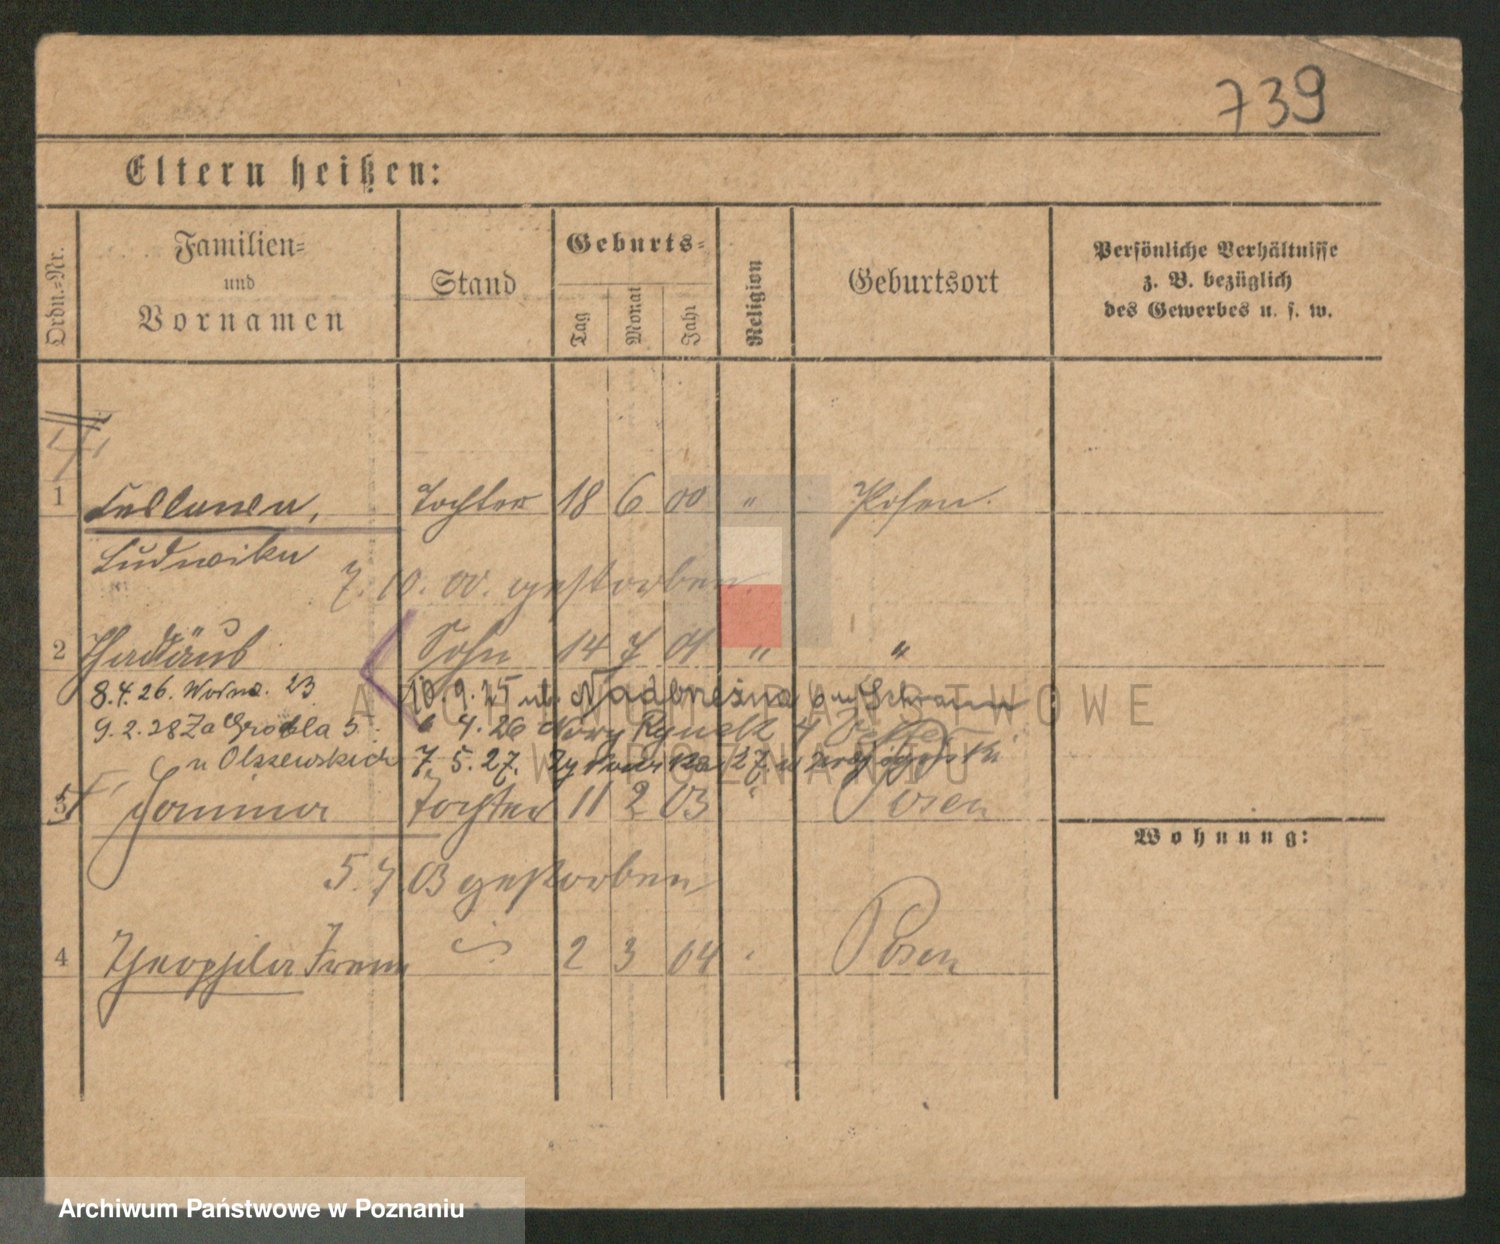 739
Eltern heißen:
Ordn.-Nr.
Familien-
und
Vornamen
Stand
Geburts-
Tag
Monat
Jahr
Religion
Geburtsort
Persönliche Verhältnisse
z. B. bezüglich
des Gewerbes u. s. w.
1 Tochter 18 6 00 " Posen.
Ludwika
7. 10. 00. gestorben
2 Thadäus Sohn 14 7 01 " "
8.4.26. Wodna. 23 10.9.25 ul. Nadbrzeżna
9.2.28 Za Groblą 5 4.26 Nowy Rynek 4
u Olszewskich 7. 5. 27.
3 Tochter 11 2 03 " Posen
Wohnung:
5. 7. 03 gestorben
4 Theophila Irene 2 3 04 Posen
ARCHIWUM PAŃSTWOWE
W POZNANIU
Archiwum Państwowe w Poznaniu